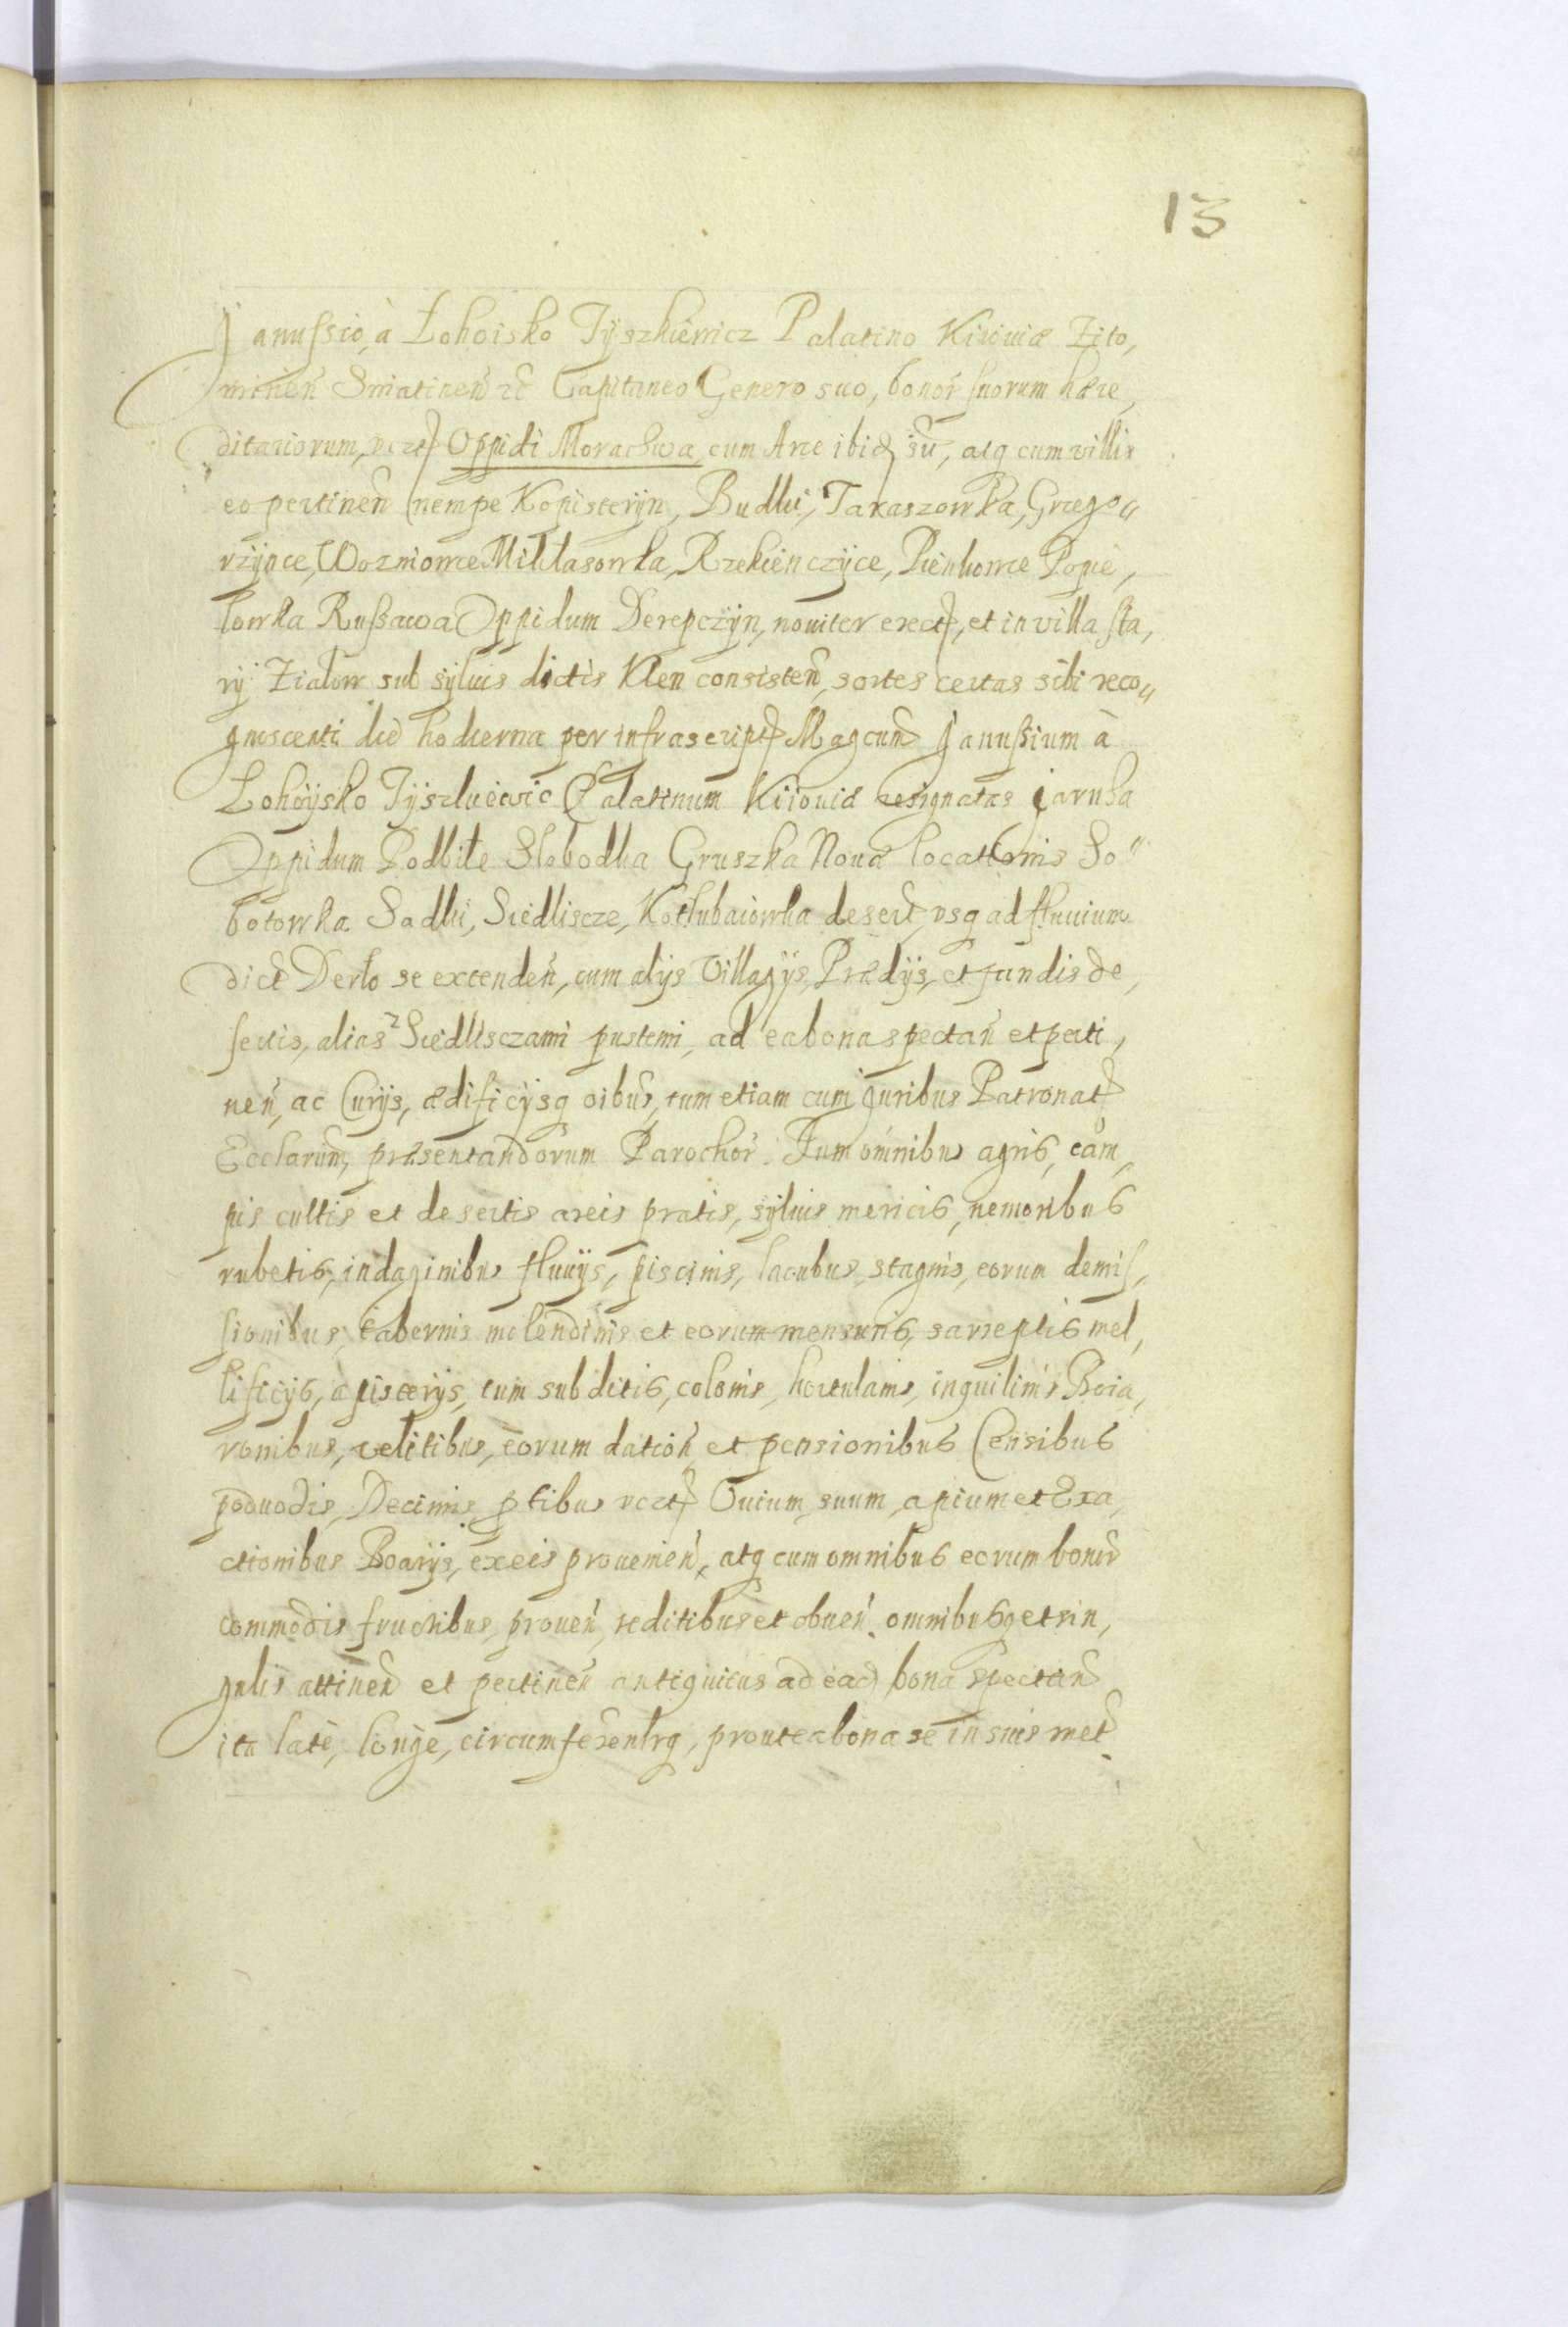 13
Janussio, à Łohoisko Tÿszkiewicz Palatino Kiiouiæ Zito,
mirien̄ Sniatinen̄ &c Capitaneo Genero suo, bonor̄ suorum hære,
ditariorum, Oppidi Morachwa cum Arce ibid, atq cum villis
eo pertinen̄ nempe Kopisterÿn, Budki, Taraszowka, Grego„
rzÿnce, Wozniowce Miklasowka, Rzekienczÿce, Pienkowce Popie,
lowka Russawa Oppidum Derepczÿn, nouiter erect, et in villa sta,
rÿ Ziałow sub sÿluis dictis Klen consisten̄, sortes certas sibi reco„
gnoscenti die hodierna per infrascript Magcum Janussium à
Łohoÿsko Tÿszkiewic Palatinum Kiiouiæ resignatas Jaruha
Oppidum Podbite Slobodka Gruszka Nouæ locationis So„
botowka Sadki, Siedliscze, Kotlubaiowka desert, usq ad fluuium
dict Derło se extenden̄, cum alÿs Villagÿs, Prædÿs, et fundis de,
sertis, alias z Siedlisczami pustemi, ad ea bona spectan̄ et perti,
nen̄, ac Curÿs, ædificÿsq oibus, tum etiam cum Juribus Patronat
Ecclarum, præsentandorum Parochor̄. Tum omnibus agris, cam,
pis cultis et desertis areis pratis, sÿluis mericis, nemoribus
rubetis, indaginibus fluuÿs, piscinis, lacubus, stagnis, eorum demis,
sionibus, tabernis molendinis et eorum mensuris, sarreptis mel,
lificÿs, apisterÿs, cum subditis, colonis, hortulanis, inquilinis Boia,
ronibus, velitibus, eorum dation̄ et pensionibus Censibus
poduodis, Decimis, Ouium, suum, apium et Exa,
ctionibus Boarÿs, ex eis prouenien̄, atq cum omnibus eorum bonis
commodis fructibus, prouen̄, reditibus et obuen̄. omnibusq et sin,
gulis attinen̄ et pertinen̄ antiquitus ad ead bona spectan̄
ita late, longe, circumferentrq, prout ea bona se in suis met